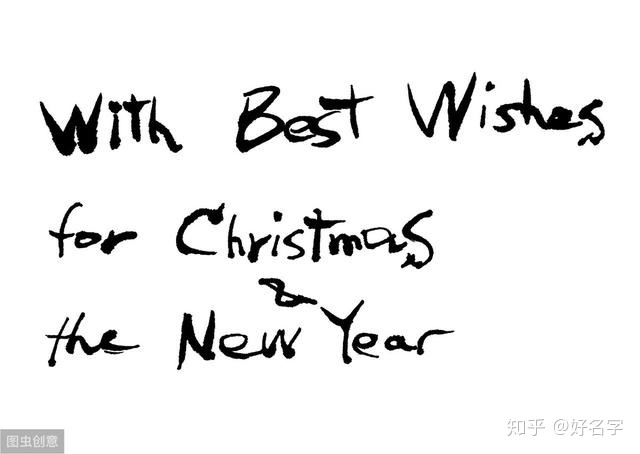 With Best Wishes
for Christmas
&
the New Year
图虫创意
知乎 @好名字